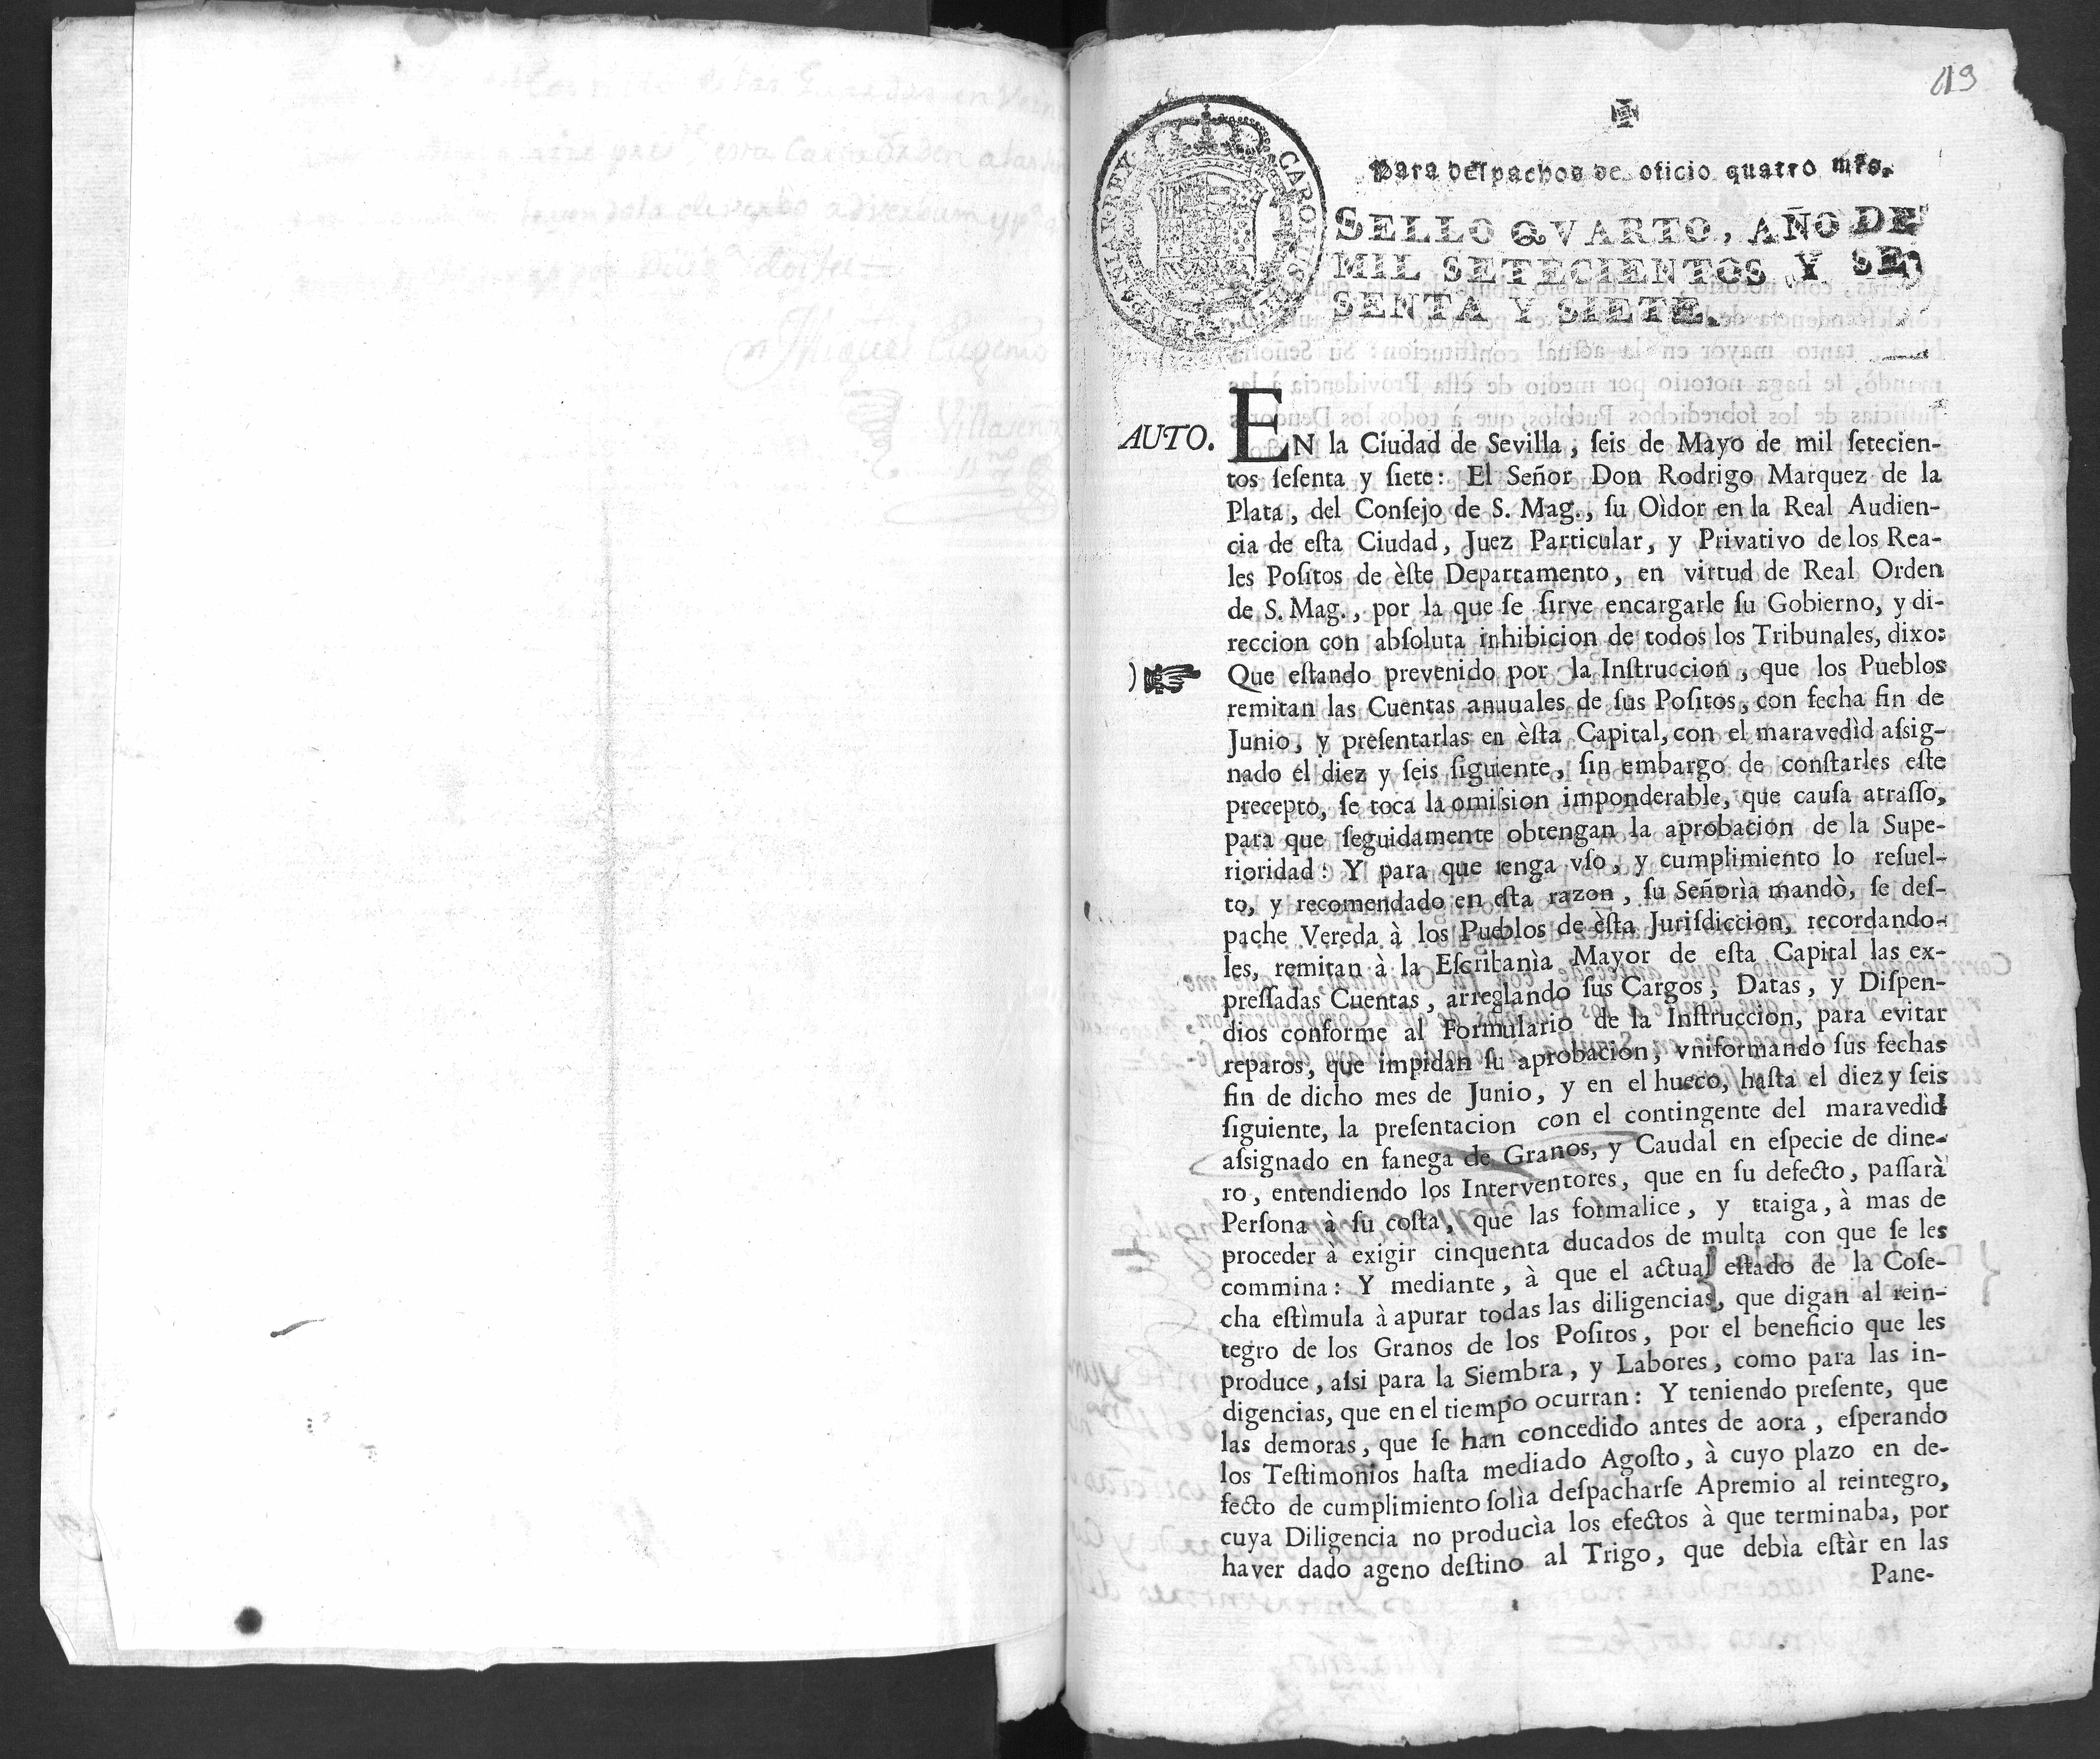 419
Para despachos de oficio quatro mrs.
SELLO QVARTO, AÑO DE
MIL SETECIENTOS Y SE-
SENTA Y SIETE.
CAROLUS HISPANIAR. REX
AUTO. EN la Ciudad de Sevilla, ſeis de Mayo de mil ſetecien-
tos ſeſenta y ſiete: El Señor Don Rodrigo Marquez de la
Plata, del Conſejo de S. Mag., ſu Oìdor en la Real Audien-
cia de eſta Ciudad, Juez Particular, y Privativo de los Rea-
les Poſitos de èſte Departamento, en virtud de Real Orden
de S. Mag., por la que ſe ſirve encargarle ſu Gobierno, y di-
reccion con abſoluta inhibicion de todos los Tribunales, dixo:
Que eſtando prevenido por la Inſtruccion, que los Pueblos
remitan las Cuentas anuuales de ſus Poſitos, con fecha fin de
Junio, y preſentarlas en èſta Capital, con el maravedìd aſsig-
nado el diez y ſeis ſiguiente, ſin embargo de conſtarles eſte
precepto, ſe toca la omiſsion imponderable, que cauſa atraſſo,
para que ſeguidamente obtengan la aprobacion de la Supe-
rioridad: Y para que tenga vſo, y cumplimiento lo reſuel-
to, y recomendado en eſta razon, ſu Señorìa mandò, ſe deſ-
pache Vereda à los Pueblos de èſta Juriſdiccion, recordando-
les, remitan à la Eſcribanìa Mayor de eſta Capital las ex-
preſſadas Cuentas, arreglando ſus Cargos, Datas, y Diſpen-
dios conforme al Formulario de la Inſtruccion, para evitar
reparos, que impidan ſu aprobacion, vniformando ſus fechas
fin de dicho mes de Junio, y en el hueco, haſta el diez y ſeis
ſiguiente, la preſentacion con el contingente del maravedìd
aſsignado en fanega de Granos, y Caudal en eſpecie de dine-
ro, entendiendo los Interventores, que en ſu defecto, paſſarà
Perſona à ſu coſta, que las formalice, y traiga, à mas de
proceder à exigir cinquenta ducados de multa con que ſe les
commina: Y mediante, à que el actual eſtado de la Coſe-
cha eſtìmula à apurar todas las diligencias, que digan al rein-
tegro de los Granos de los Poſitos, por el beneficio que les
produce, aſsi para la Siembra, y Labores, como para las in-
digencias, que en el tiempo ocurran: Y teniendo preſente, que
las demoras, que ſe han concedido antes de aora, eſperando
los Teſtimonios haſta mediado Agoſto, à cuyo plazo en de-
fecto de cumplimiento ſolìa deſpacharſe Apremio al reintegro,
cuya Diligencia no producìa los efectos à que terminaba, por
haver dado ageno deſtino al Trigo, que debìa eſtàr en las
Pane-